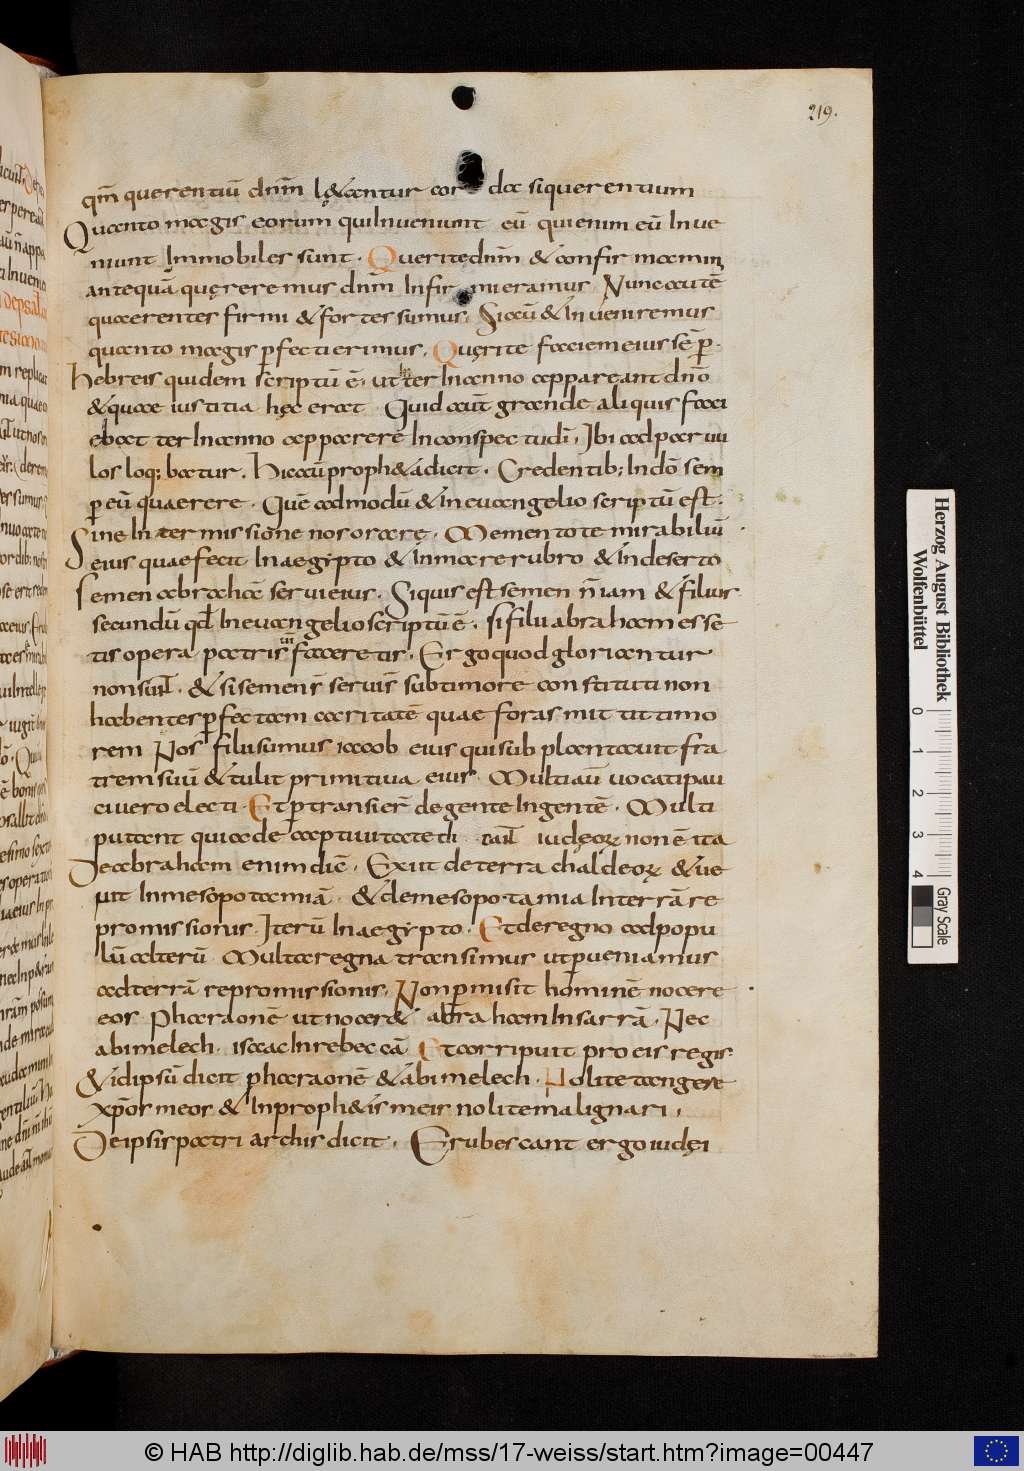 219.
qm̄ querentiū dnm̄ lę&antur cor da si querentium
Quanto magis eorum qui Inueniunt eū quienim eū Inue
niunt Immobiles sunt. Querite dnm̄ & confirmamini
antequā quęreremus dnm̄ Infirmi eramus Nunc autē
quaerentes firmi & fortes sumus. Si aū & Inueniremus
quanto magis pfecti erimus. Quęrite faciem eius sēp.
Hebreis quidem scriptū ē. ut ter Inanno appareant dnō
& quae iustitia hęc erat Quid aūt grande aliquis faci
ebat ter Inanno apparere Inconspectu dī. Ibi ad paruu
los loq; batur. Hic aū proph&a dicit. Credentib; Indō sem
p eū quaerere. Quē admodū & In euangelio scriptū est.
Sine Intermissione nos orare. Mementote mirabiliū
eius quae fecit In aegypto & In mare rubro & In deserto
Semen abrahae serui eius. Siquis est semen n̄ iam & filius
secundū qd̄ In euangelio scriptū ē. si filii abraham esse
tis opera patris ūri faceretis. Ergo quod gloriantur
non sunt. & si semen s̄ serui s̄ sub timore constituti non
habentes pfectam caritatē quae foras mittit timo
rem Nos filii sumus iacob eius qui supplantauit fra
trem suū & tulit primitiua eius. Multi aū uocati pau
ci uero electi. Et ptransier̄ de gente In gentē. Multi
putant quia de captiuitate di iudęoꝝ non ē ita
De abraham enim diē. Exiit de terra chaldeoꝝ & ue
nit In mesopotamiā. & de mesopotamia In terrā re
promissionis. Iterū In aegypto. Et de regno ad popu
lū alterū Multa regna transimus ut pueniamus
ad terrā repromissionis. Non pmisit hominē nocere
eos Pharaonē ut nocer& abraham In sarrā. Nec
abimelech. isaac In rebeccā Et corripuit pro eis reges
& id ipsū dicit pharaonē & abimelech. Nolite tangere
xp̄os meos & In proph&is meis nolite malignari.
De ipsis patriarchis dicit. Erubescant ergo iudęi
Herzog August Bibliothek
Wolfenbüttel
0 1 2 3 4
Gray Scale
© HAB http://diglib.hab.de/mss/17-weiss/start.htm?image=00447